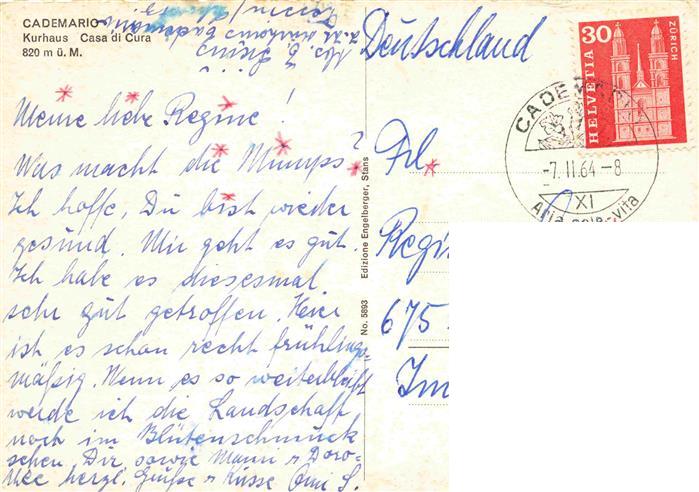 CADEMARIO
Kurhaus Casa di Cura
820 m ü. M.
Meine liebe Regine!
Was macht die Mumps?
Ich hoffe, Du bist wieder
gesund. Mir geht es gut.
Ich habe es diesesmal
sehr gut getroffen. Hier
ist es schon recht frühlings-
mäßig. Wenn es so weiterbleibt
werde ich die Landschaft
noch im Blütenschmuck
sehen. Dir, sowie Mami u Doro-
thee herzl. Grüße u Küsse Omi S.
No. 5893 Edizione Engelberger, Stans
Deutschland
30
HELVETIA
ZÜRICH
CADEMARIO
-7. II. 64 - 8
XI
Frl
Regi
675
Im